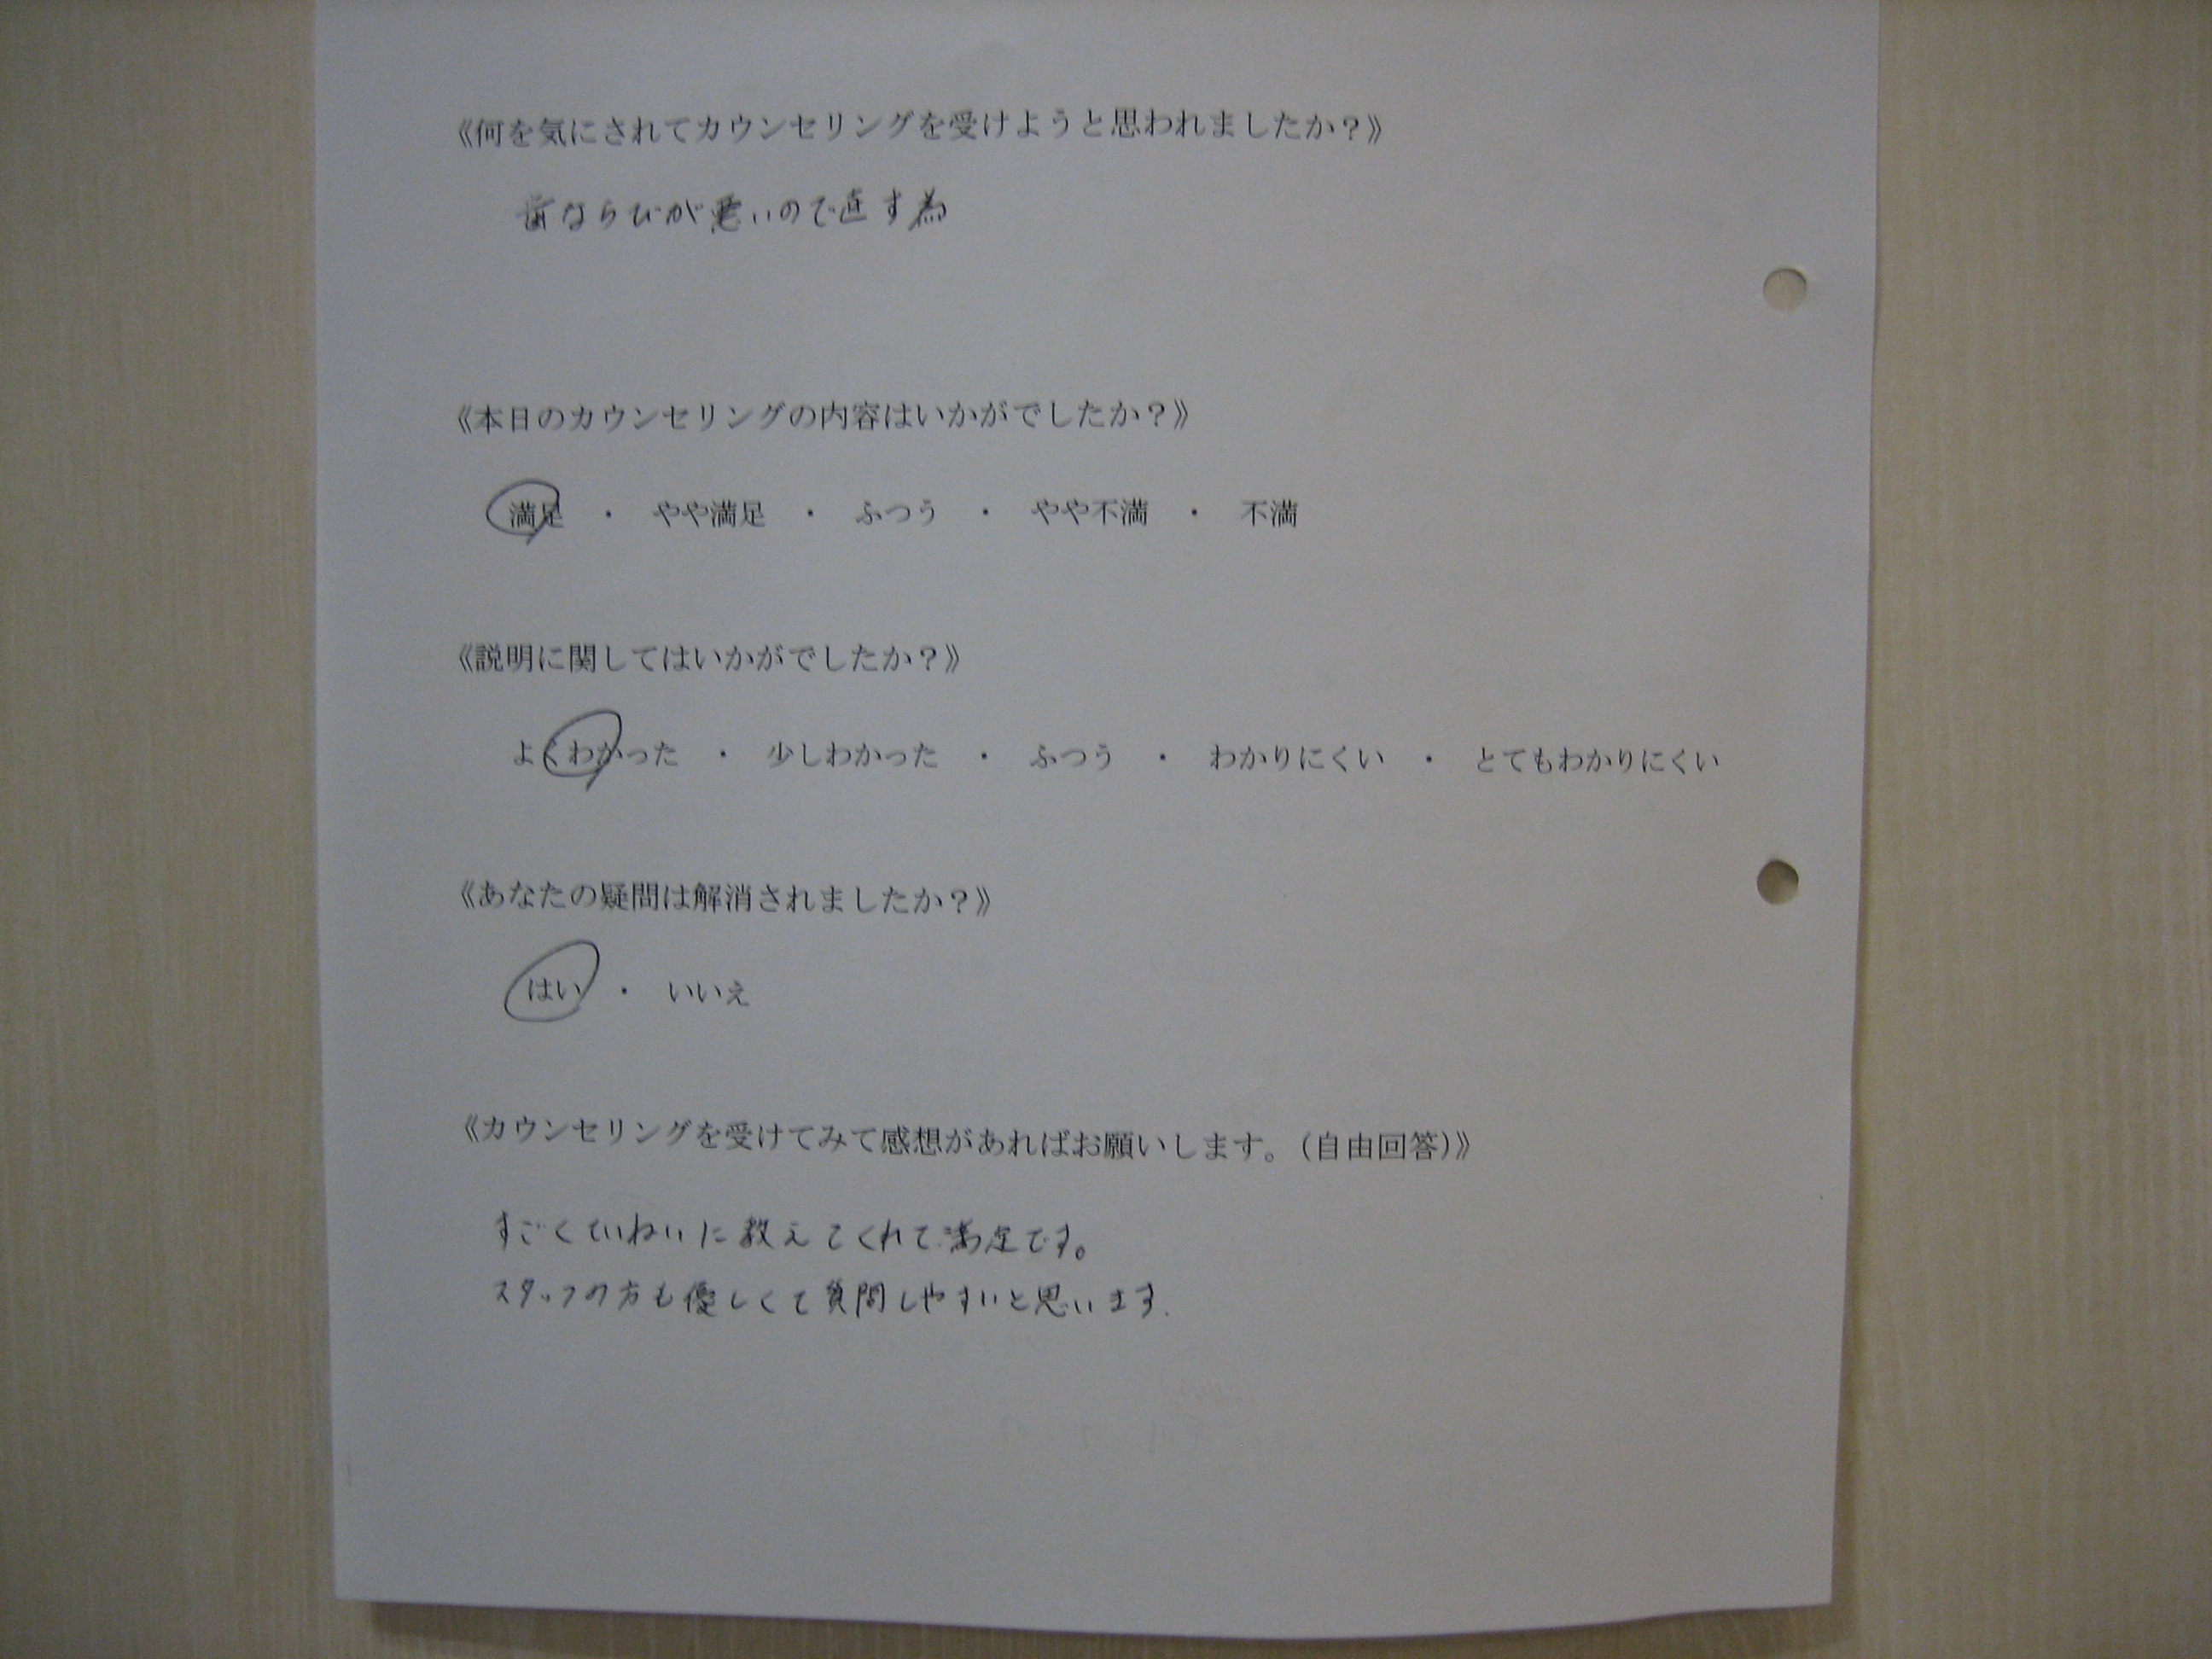 《何を気にされてカウンセリングを受けようと思われましたか？》
歯ならびが悪いので直す為
《本日のカウンセリングの内容はいかがでしたか？》
満足　・　やや満足　・　ふつう　・　やや不満　・　不満
《説明に関してはいかがでしたか？》
よくわかった　・　少しわかった　・　ふつう　・　わかりにくい　・　とてもわかりにくい
《あなたの疑問は解消されましたか？》
はい　・　いいえ
《カウンセリングを受けてみて感想があればお願いします。（自由回答）》
すごくていねいに教えてくれて満足です。
スタッフの方も優しくて質問しやすいと思います.